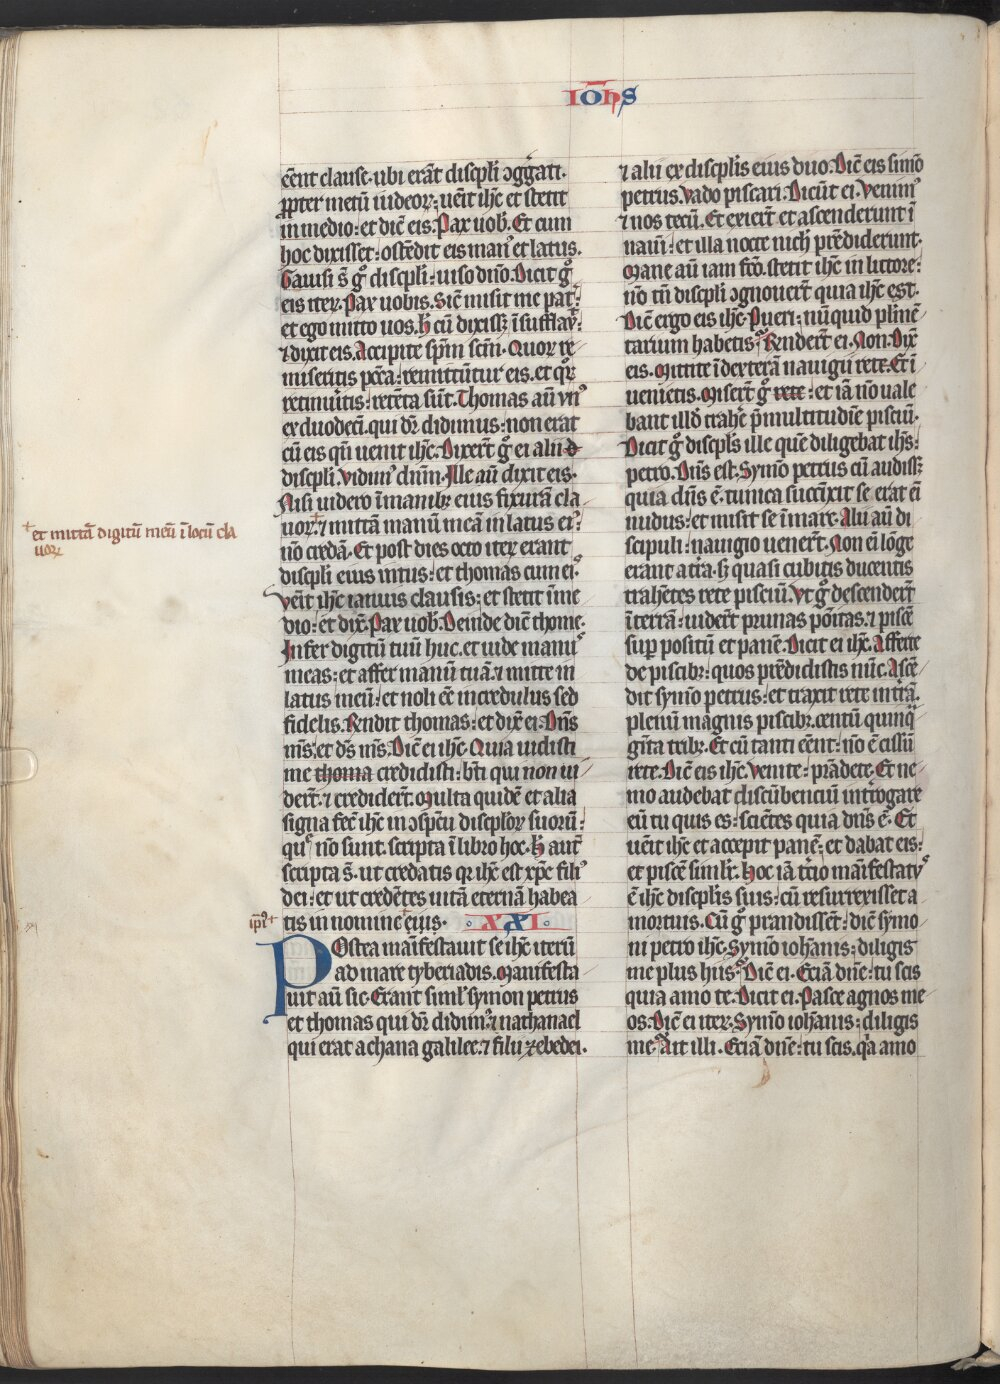 IOH̅S
ee̅nt clause. ubi era̅t discip̅li ꝯg̅gati.
ꝓpter metu̅ iudeoꝝ. ue̅it ih̅c et stetit
in medio: et dic̅ eis. Pax uob̅. Et cum
hoc dixisset: oste̅dit eis manꝰ et latus.
Gauisi s̅ gͦ discip̅li: uiso dn̅o. Dicit gͦ
eis iteꝝ. Pax uobis. Sic̅ misit me pat̅:
et ego mitto uos. h̅ cu̅ dixiss̅ i̅sufflau̅:
⁊ dixit eis. Accipite sp̅m sc̅m. Quoꝝ re
miseritis pc̅c̅a: remittu̅tur eis. et qͦꝝ
retinu̅itis: rete̅ta su̅t. Thomas au̅ unꝰ
ex duodeci̅. qui dr̅ didimus: non erat
cu̅ eis qn̅ uenit ih̅c. Dixer̅t gͦ ei alii d
discip̅li. Vidimꝰ dn̅m. Ille au̅ dixit eis.
Nisi uidero i̅ manibꝫ eius fixura̅ cla
uoꝝ: ⁊ mitta̅ manu̅ mea̅ in latus eiꝰ:
no̅ creda̅. Et post dies octo iteꝝ erant
discip̅li eius intus: et thomas cum eiꝰ.
Ve̅it ih̅c ianuis clausis: et stetit i̅ me
dio: et dix̅. Pax uob̅. Deinde dic̅ thome.
Infer digitu̅ tuu̅ huc. et uide manꝰ
meas: et affer manu̅ tua̅. ⁊ mitte in
latus meu̅: et noli ee̅ incredulus sed
fidelis. R̅ndit thomas: et dix̅ ei. Dn̅s
m̅s. et ds̅ m̅s. Dic̅ ei ih̅c. Quia uidisti
me thoma credidisti: bt̅i qui non ui
der̅t. ⁊ credider̅t. Multa quide̅ et alia
signa fec̅ ih̅c in ꝯspc̅tu discip̅loꝝ suoꝝ:
qu̅ no̅ sunt scripta i̅ libro hoc. h̅ aut̅
scripta s̅. ut credatis qꝛ ih̅c est xp̅c filiꝰ
dei: et ut crede̅tes uita̅ eterna̅ habea
tis in nomine eius. XXI.
Ostea ma̅ifestauit se ih̅c iteru̅
P ad mare tyberiadis. Manifesta
uit au̅ sic. Erant siml̅ symon petrus
et thomas qui dr̅ didimꝰ. ⁊ nathanael
qui erat a chana galilee. ⁊ filii zebedei.
et mitta̅ digitu̅ meu̅ i̅ locu̅ cla
uoꝝ
ip̅iꝰ
⁊ alii ex discip̅lis eius duo. Dic̅ eis simo̅
petrus. Vado piscari. Dicu̅t ei. Venimꝰ
⁊ nos tecu̅. Et exier̅t et ascenderunt i̅
naui̅: et illa nocte nich̅ pre̅diderunt.
Mane au̅ iam fc̅o. stetit ih̅c in littore:
no̅ tn̅ discip̅li ꝯgnouer̅t quia ih̅c est.
Dic̅ ergo eis ih̅c. Pueri: nu̅quid pl̅me̅
tarium habetis. R̅nder̅t ei. Non. Dix̅
eis. Mittite i̅ dextera̅ nauigii rete. Et i̅
uenietis. Miser̅t gͦ rete: et ia̅ no̅ uale
bant illd̅ trahe̅ p̅ multitudi̅e pisciu̅.
Dicit gͦ discip̅ls ille que̅ diligebat ih̅s:
petro. Dn̅s est. Symo̅ petrus cu̅ audiss̅
quia dn̅s e̅. tunica succi̅xit se erat ei̅
nudus: et misit se i̅ mare. Alii au̅ di
scipuli: nauigio uener̅t. Non ei̅ lo̅ge
erant a t̅ra. sꝫ quasi cubitis ducentis
trahe̅tes rete pisciu̅. Vt gͦ descender̅t
i̅ terra̅: uider̅t prunas po̅itas. ⁊ pisce̅
suꝑ positu̅ et pane̅. Dicit ei ih̅c. Afferte
de piscibꝫ: quos pre̅didistis nu̅c. Asce̅
dit symo̅ petrus: et traxit rete in t̅ra̅.
plenu̅ magnis piscibꝫ. centu̅ quinq̅
gi̅ta tribꝫ. Et cu̅ tanti ee̅nt: no̅ e̅ cissu̅
rete. Dic̅ eis ih̅c. Venite: pra̅dete. Et ne
mo audebat discu̅bentiu̅ int̅rogare
eu̅ tu quis es: scie̅tes quia dn̅s e̅. Et
ue̅it ih̅c et accepit pane̅: et dabat eis:
et pisce̅ simil̅r. Hoc ia̅ t̅cio ma̅ifestatꝰ
e̅ ih̅c discip̅lis suis: cu̅ resurrexisset a
mortuis. Cu̅ gͦ prandisse̅t: dic̅ symo
ni petro ih̅c. Symo̅ ioha̅nis: diligis
me plus hiis. Dic̅ ei. Ecia̅ dn̅e: tu scis
quia amo te. Dicit ei. Pasce agnos me
os. Dic̅ ei iteꝝ. Symo̅ ioha̅nis: diligis
me. Ait illi. Ecia̅ dn̅e: tu scis. qꝛa amo